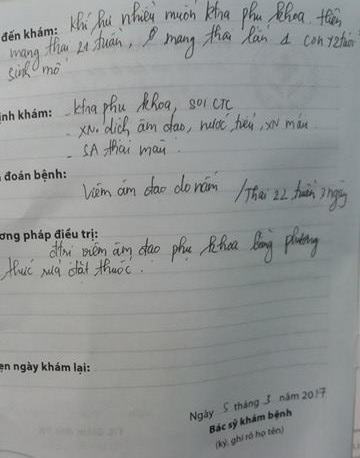 đến khám: Khí hư nhiều muốn khna phụ khoa, hiện
mang thai 21 tuần, mang thai lần 1 con 12 tuổi
sinh mổ
ịnh khám: - khna phụ khoa, soi CTC
- XN. dịch âm đạo, nước tiểu, XN máu
- SA thai màu.
đoán bệnh:
Viêm âm đạo do nấm /Thai 22 tuần 2 ngày
ơng pháp điều trị:
đtrị viêm âm đạo phụ khoa bằng phương
thức rửa đặt thuốc.
ẹn ngày khám lại:
Ngày 5 tháng 3 năm 2017
Bác sỹ khám bệnh
(ký, ghi rõ họ tên)